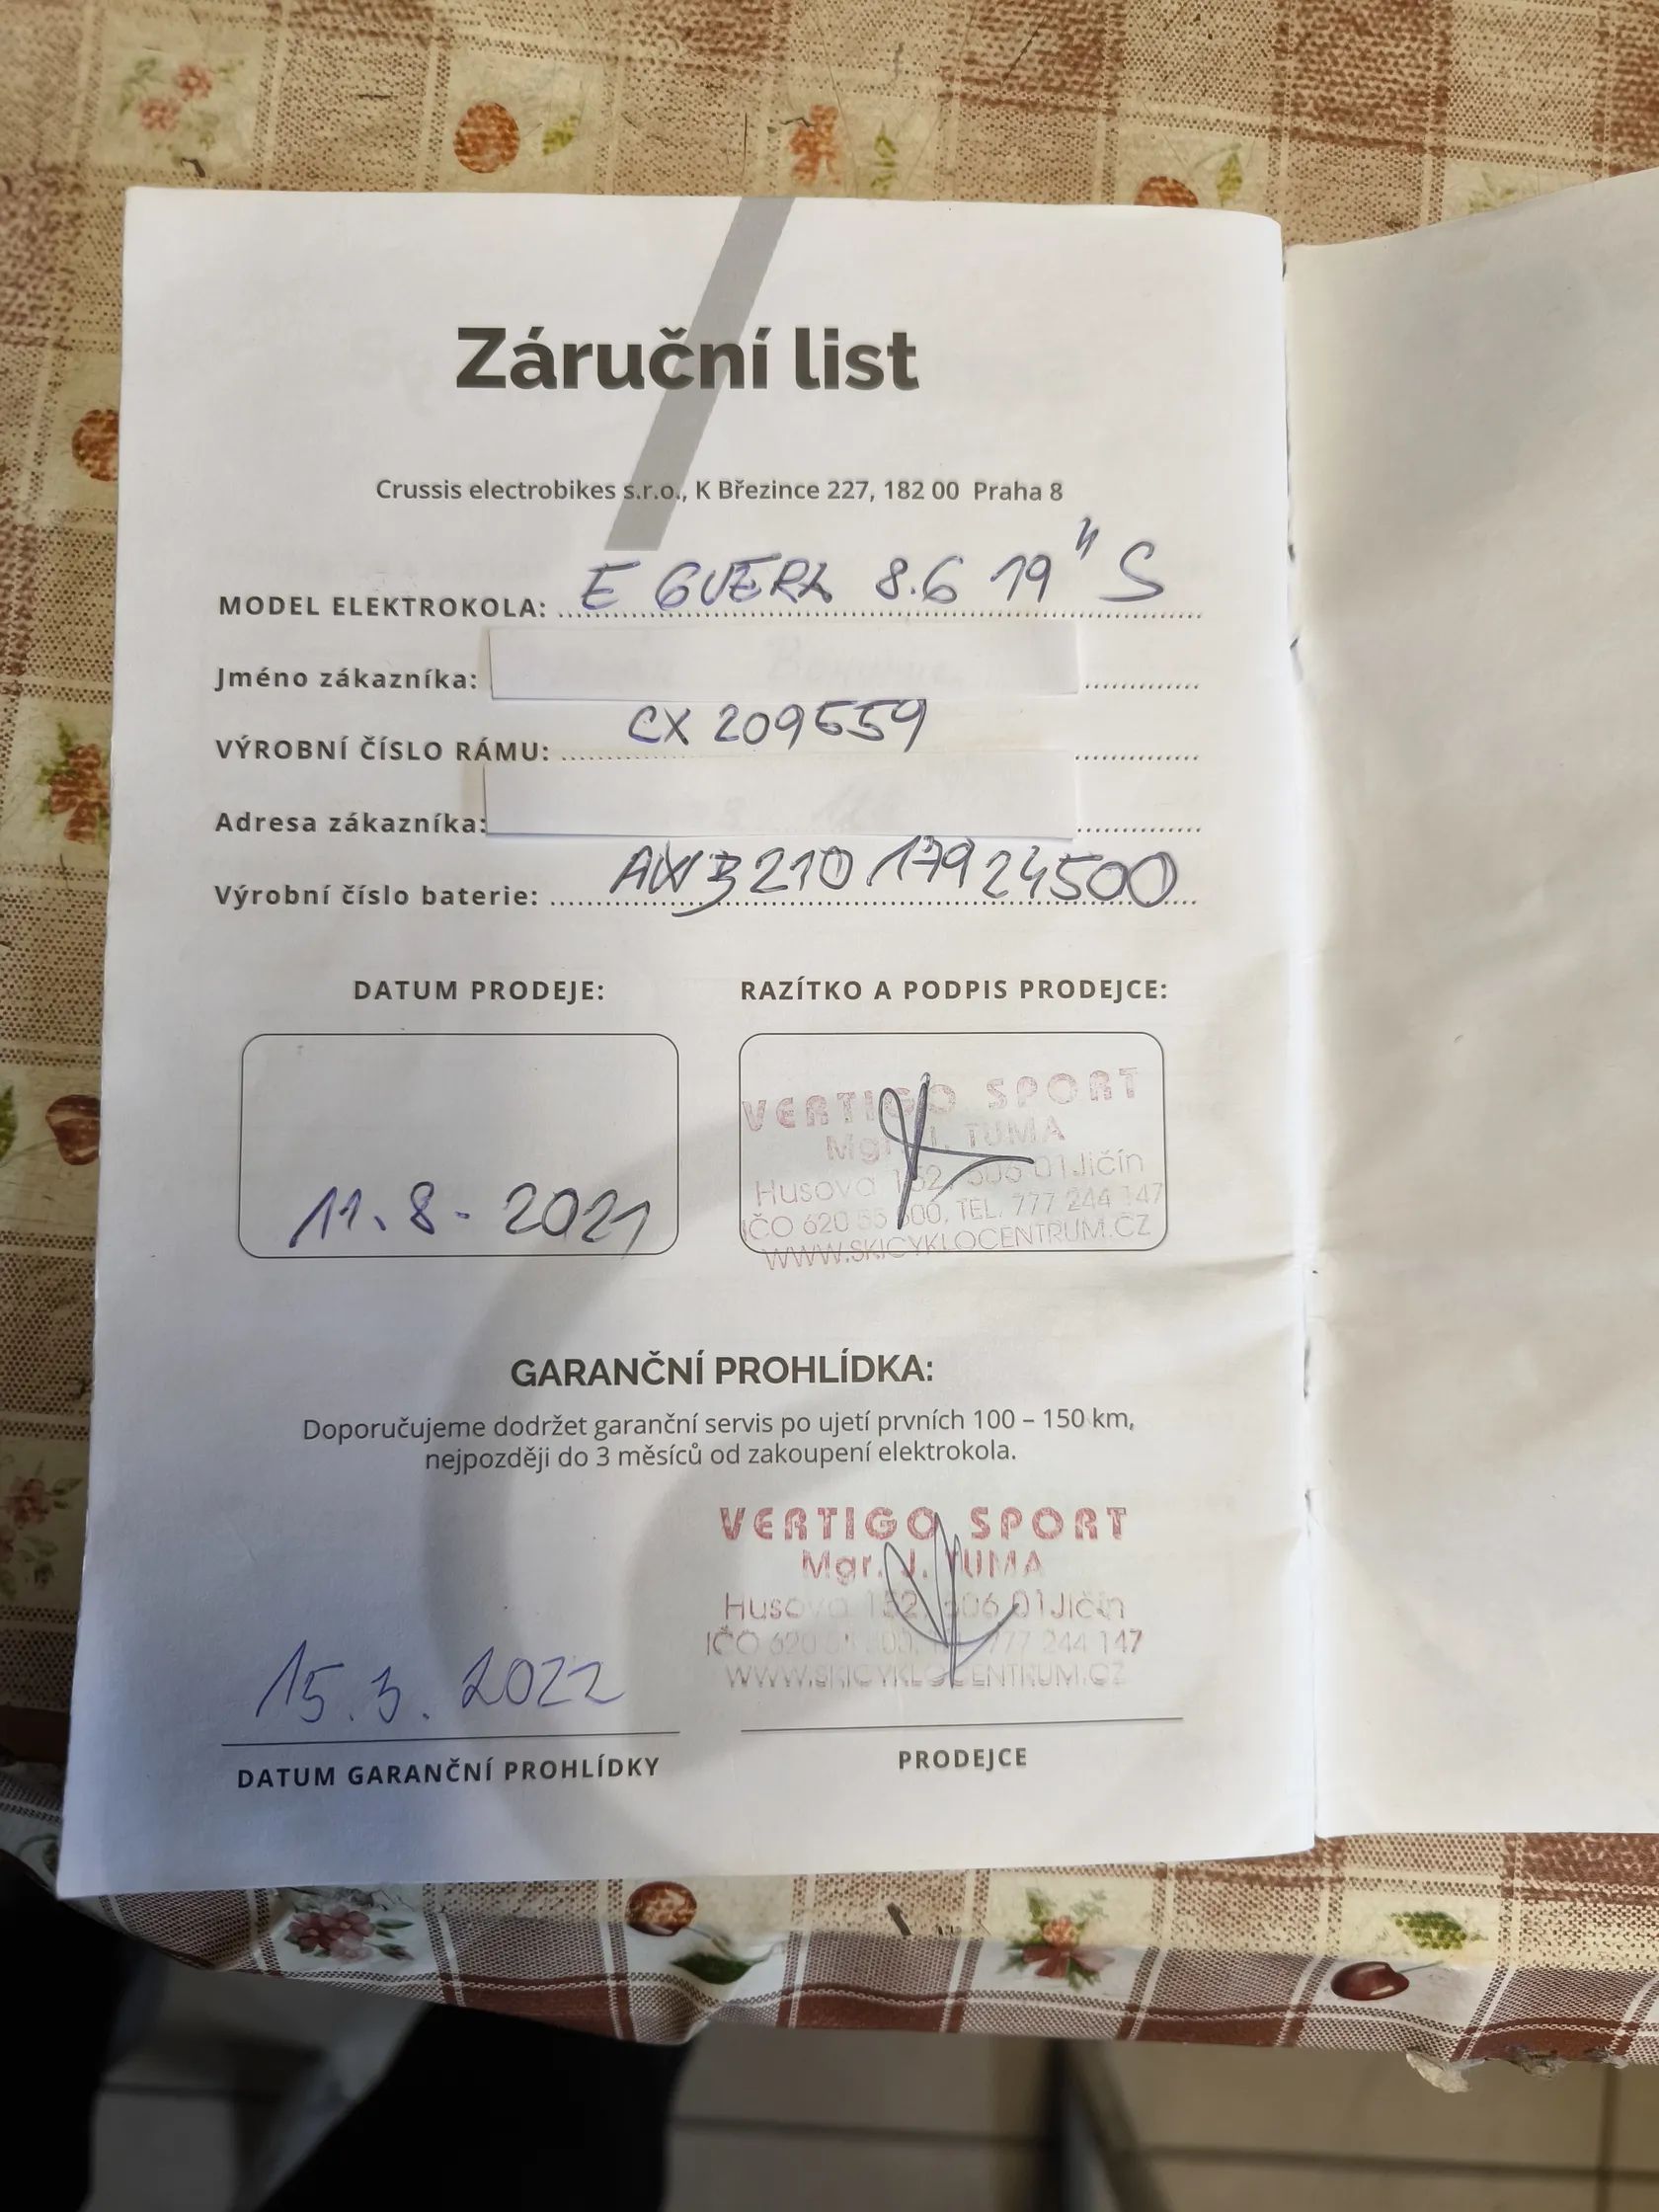 Záruční list
Crussis electrobikes s.r.o., K Březince 227, 182 00 Praha 8
MODEL ELEKTROKOLA: E GUERA 8.6 19" S
Jméno zákazníka:
VÝROBNÍ ČÍSLO RÁMU: CX 209559
Adresa zákazníka:
Výrobní číslo baterie: AW321017924500
DATUM PRODEJE: RAZÍTKO A PODPIS PRODEJCE:
VERTIGO SPORT
Mgr. J. TUMA
Husova 152, 506 01 Jičín
IČO 620 55 800, TEL. 777 244 147
WWW.SKICYKLOCENTRUM.CZ
11. 8. 2021
GARANČNÍ PROHLÍDKA:
Doporučujeme dodržet garanční servis po ujetí prvních 100 – 150 km,
nejpozději do 3 měsíců od zakoupení elektrokola.
VERTIGO SPORT
Mgr. J. TUMA
Husova 152, 506 01 Jičín
IČO 620 777 244 147
WWW.SKICYKLOCENTRUM.CZ
15. 3. 2022
DATUM GARANČNÍ PROHLÍDKY PRODEJCE